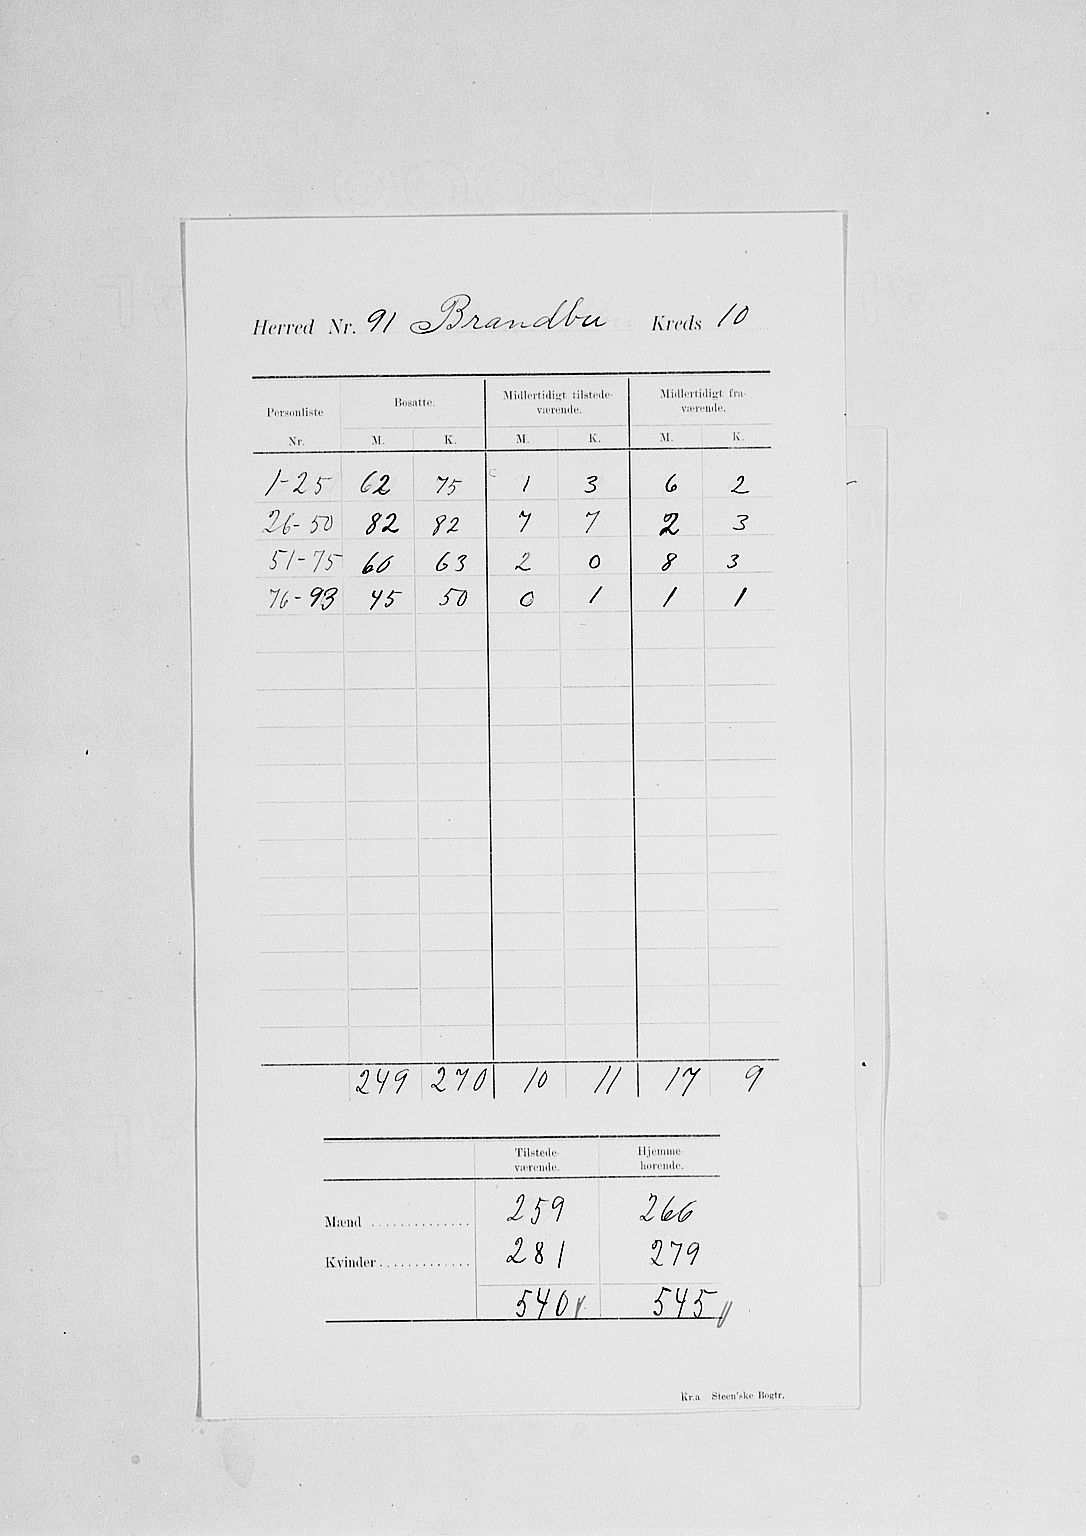 Herred Nr. 91 Brandbu Kreds 10
Personliste Nr. Bosatte. Midlertidigt tilstede-værende. Midlertidigt fra-værende.
M. K. M. K. M. K.
1-25 62 75 1 3 6 2
26-50 82 82 7 7 2 3
51-75 60 63 2 0 8 3
76-93 45 50 0 1 1 1
249 270 10 11 17 9
Tilstede-værende. Hjemme-hørende.
Mænd .............. 259 266
Kvinder ............. 281 279
540 545
Kr.a Steen'ske Bogtr.